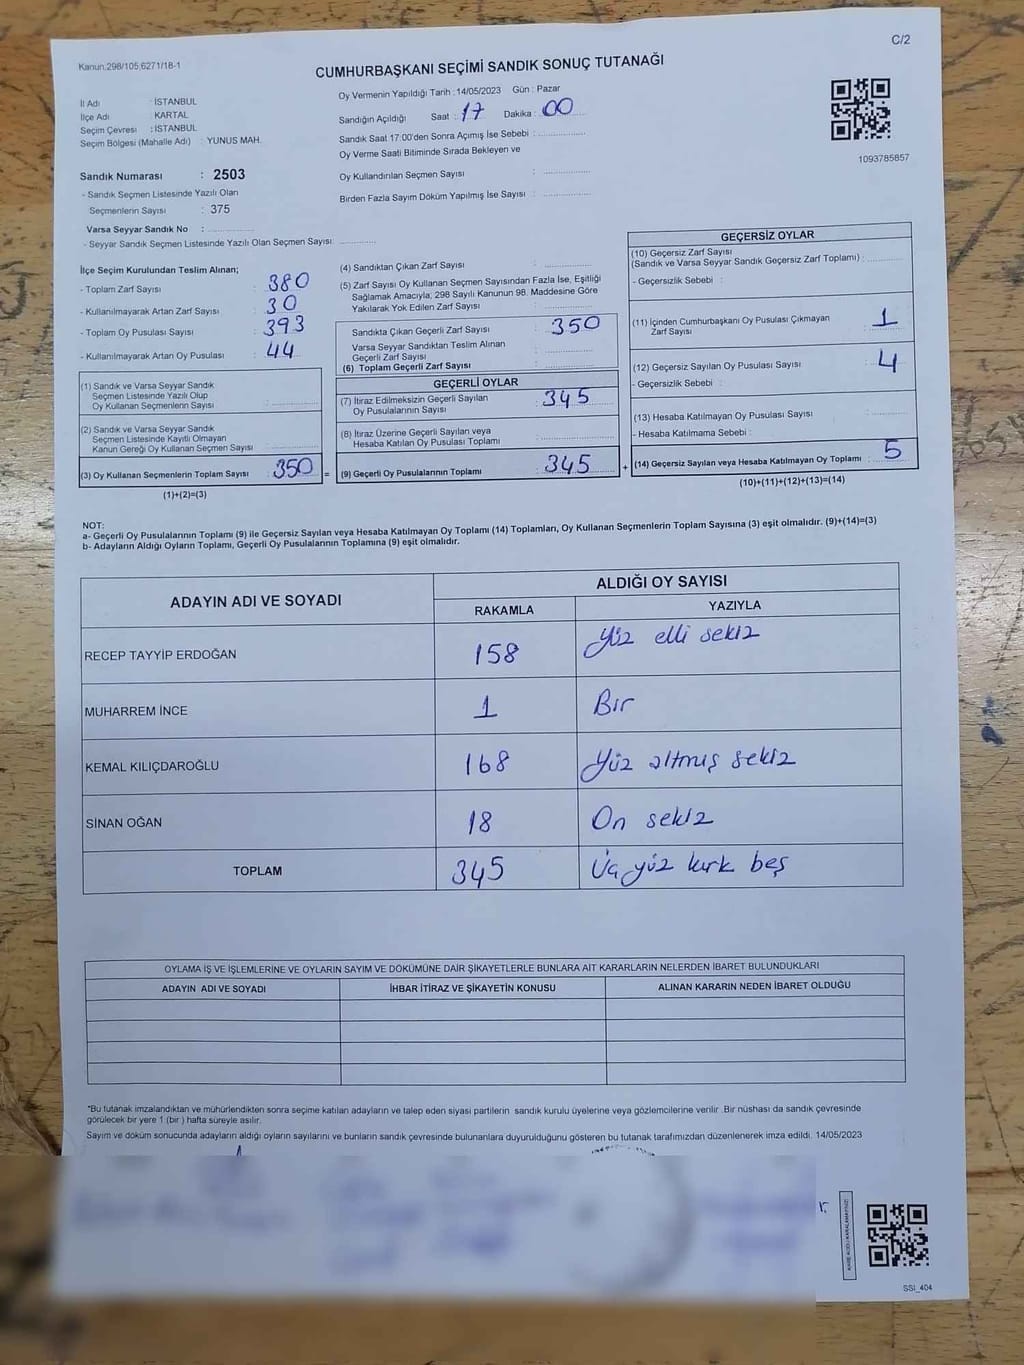 Kanun.298/105,6271/18-1
C/2
CUMHURBAŞKANI SEÇİMİ SANDIK SONUÇ TUTANAĞI
İl Adı : İSTANBUL
İlçe Adı : KARTAL
Seçim Çevresi : İSTANBUL
Seçim Bölgesi (Mahalle Adı) : YUNUS MAH.
Oy Vermenin Yapıldığı Tarih : 14/05/2023 Gün : Pazar
Sandığın Açıldığı Saat : 17 Dakika : 00
Sandık Saat 17:00'den Sonra Açımış İse Sebebi :
Oy Verme Saati Bitiminde Sırada Bekleyen ve
Oy Kullandırılan Seçmen Sayısı :
Birden Fazla Sayım Döküm Yapılmış İse Sayısı :
1093785857
Sandık Numarası : 2503
- Sandık Seçmen Listesinde Yazılı Olan
Seçmenlerin Sayısı : 375
Varsa Seyyar Sandık No :
- Seyyar Sandık Seçmen Listesinde Yazılı Olan Seçmen Sayısı:
İlçe Seçim Kurulundan Teslim Alınan;
- Toplam Zarf Sayısı : 380
- Kullanılmayarak Artan Zarf Sayısı : 30
- Toplam Oy Pusulası Sayısı : 393
- Kullanılmayarak Artan Oy Pusulası : 44
(1) Sandık ve Varsa Seyyar Sandık
Seçmen Listesinde Yazılı Olup
Oy Kullanan Seçmenlerin Sayısı :
(2) Sandık ve Varsa Seyyar Sandık
Seçmen Listesinde Kayıtlı Olmayan
Kanun Gereği Oy Kullanan Seçmen Sayısı :
(3) Oy Kullanan Seçmenlerin Toplam Sayısı : 350 =
(1)+(2)=(3)
(4) Sandıktan Çıkan Zarf Sayısı :
(5) Zarf Sayısı Oy Kullanan Seçmen Sayısından Fazla İse, Eşitliği
Sağlamak Amacıyla; 298 Sayılı Kanunun 98. Maddesine Göre
Yakılarak Yok Edilen Zarf Sayısı :
Sandıkta Çıkan Geçerli Zarf Sayısı : 350
Varsa Seyyar Sandıktan Teslim Alınan
Geçerli Zarf Sayısı :
(6) Toplam Geçerli Zarf Sayısı :
GEÇERLİ OYLAR
(7) İtiraz Edilmeksizin Geçerli Sayılan
Oy Pusulalarının Sayısı : 345
(8) İtiraz Üzerine Geçerli Sayılan veya
Hesaba Katılan Oy Pusulası Toplamı :
(9) Geçerli Oy Pusulalarının Toplamı : 345 +
GEÇERSİZ OYLAR
(10) Geçersiz Zarf Sayısı
(Sandık ve Varsa Seyyar Sandık Geçersiz Zarf Toplamı) :
- Geçersizlik Sebebi :
(11) İçinden Cumhurbaşkanı Oy Pusulası Çıkmayan
Zarf Sayısı : 1
(12) Geçersiz Sayılan Oy Pusulası Sayısı : 4
- Geçersizlik Sebebi :
(13) Hesaba Katılmayan Oy Pusulası Sayısı :
- Hesaba Katılmama Sebebi :
(14) Geçersiz Sayılan veya Hesaba Katılmayan Oy Toplamı : 5
(10)+(11)+(12)+(13)=(14)
NOT:
a- Geçerli Oy Pusulalarının Toplamı (9) ile Geçersiz Sayılan veya Hesaba Katılmayan Oy Toplamı (14) Toplamları, Oy Kullanan Seçmenlerin Toplam Sayısına (3) eşit olmalıdır. (9)+(14)=(3)
b- Adayların Aldığı Oyların Toplamı, Geçerli Oy Pusulalarının Toplamına (9) eşit olmalıdır.
ADAYIN ADI VE SOYADI ALDIĞI OY SAYISI
RAKAMLA YAZIYLA
RECEP TAYYİP ERDOĞAN 158 Yüz elli sekiz
MUHARREM İNCE 1 Bir
KEMAL KILIÇDAROĞLU 168 Yüz altmış sekiz
SİNAN OĞAN 18 On sekiz
TOPLAM 345 Üç yüz kırk beş
OYLAMA İŞ VE İŞLEMLERİNE VE OYLARIN SAYIM VE DÖKÜMÜNE DAİR ŞİKAYETLERLE BUNLARA AİT KARARLARIN NELERDEN İBARET BULUNDUKLARI
ADAYIN ADI VE SOYADI İHBAR İTİRAZ VE ŞİKAYETİN KONUSU ALINAN KARARIN NEDEN İBARET OLDUĞU
*Bu tutanak imzalandıktan ve mühürlendikten sonra seçime katılan adayların ve talep eden siyasi partilerin sandık kurulu üyelerine veya gözlemcilerine verilir .Bir nüshası da sandık çevresinde
görülecek bir yere 1 (bir ) hafta süreyle asılır.
Sayım ve döküm sonucunda adayların aldığı oyların sayılarını ve bunların sandık çevresinde bulunanlara duyurulduğunu gösteren bu tutanak tarafımızdan düzenlenerek imza edildi. 14/05/2023
SSI_404